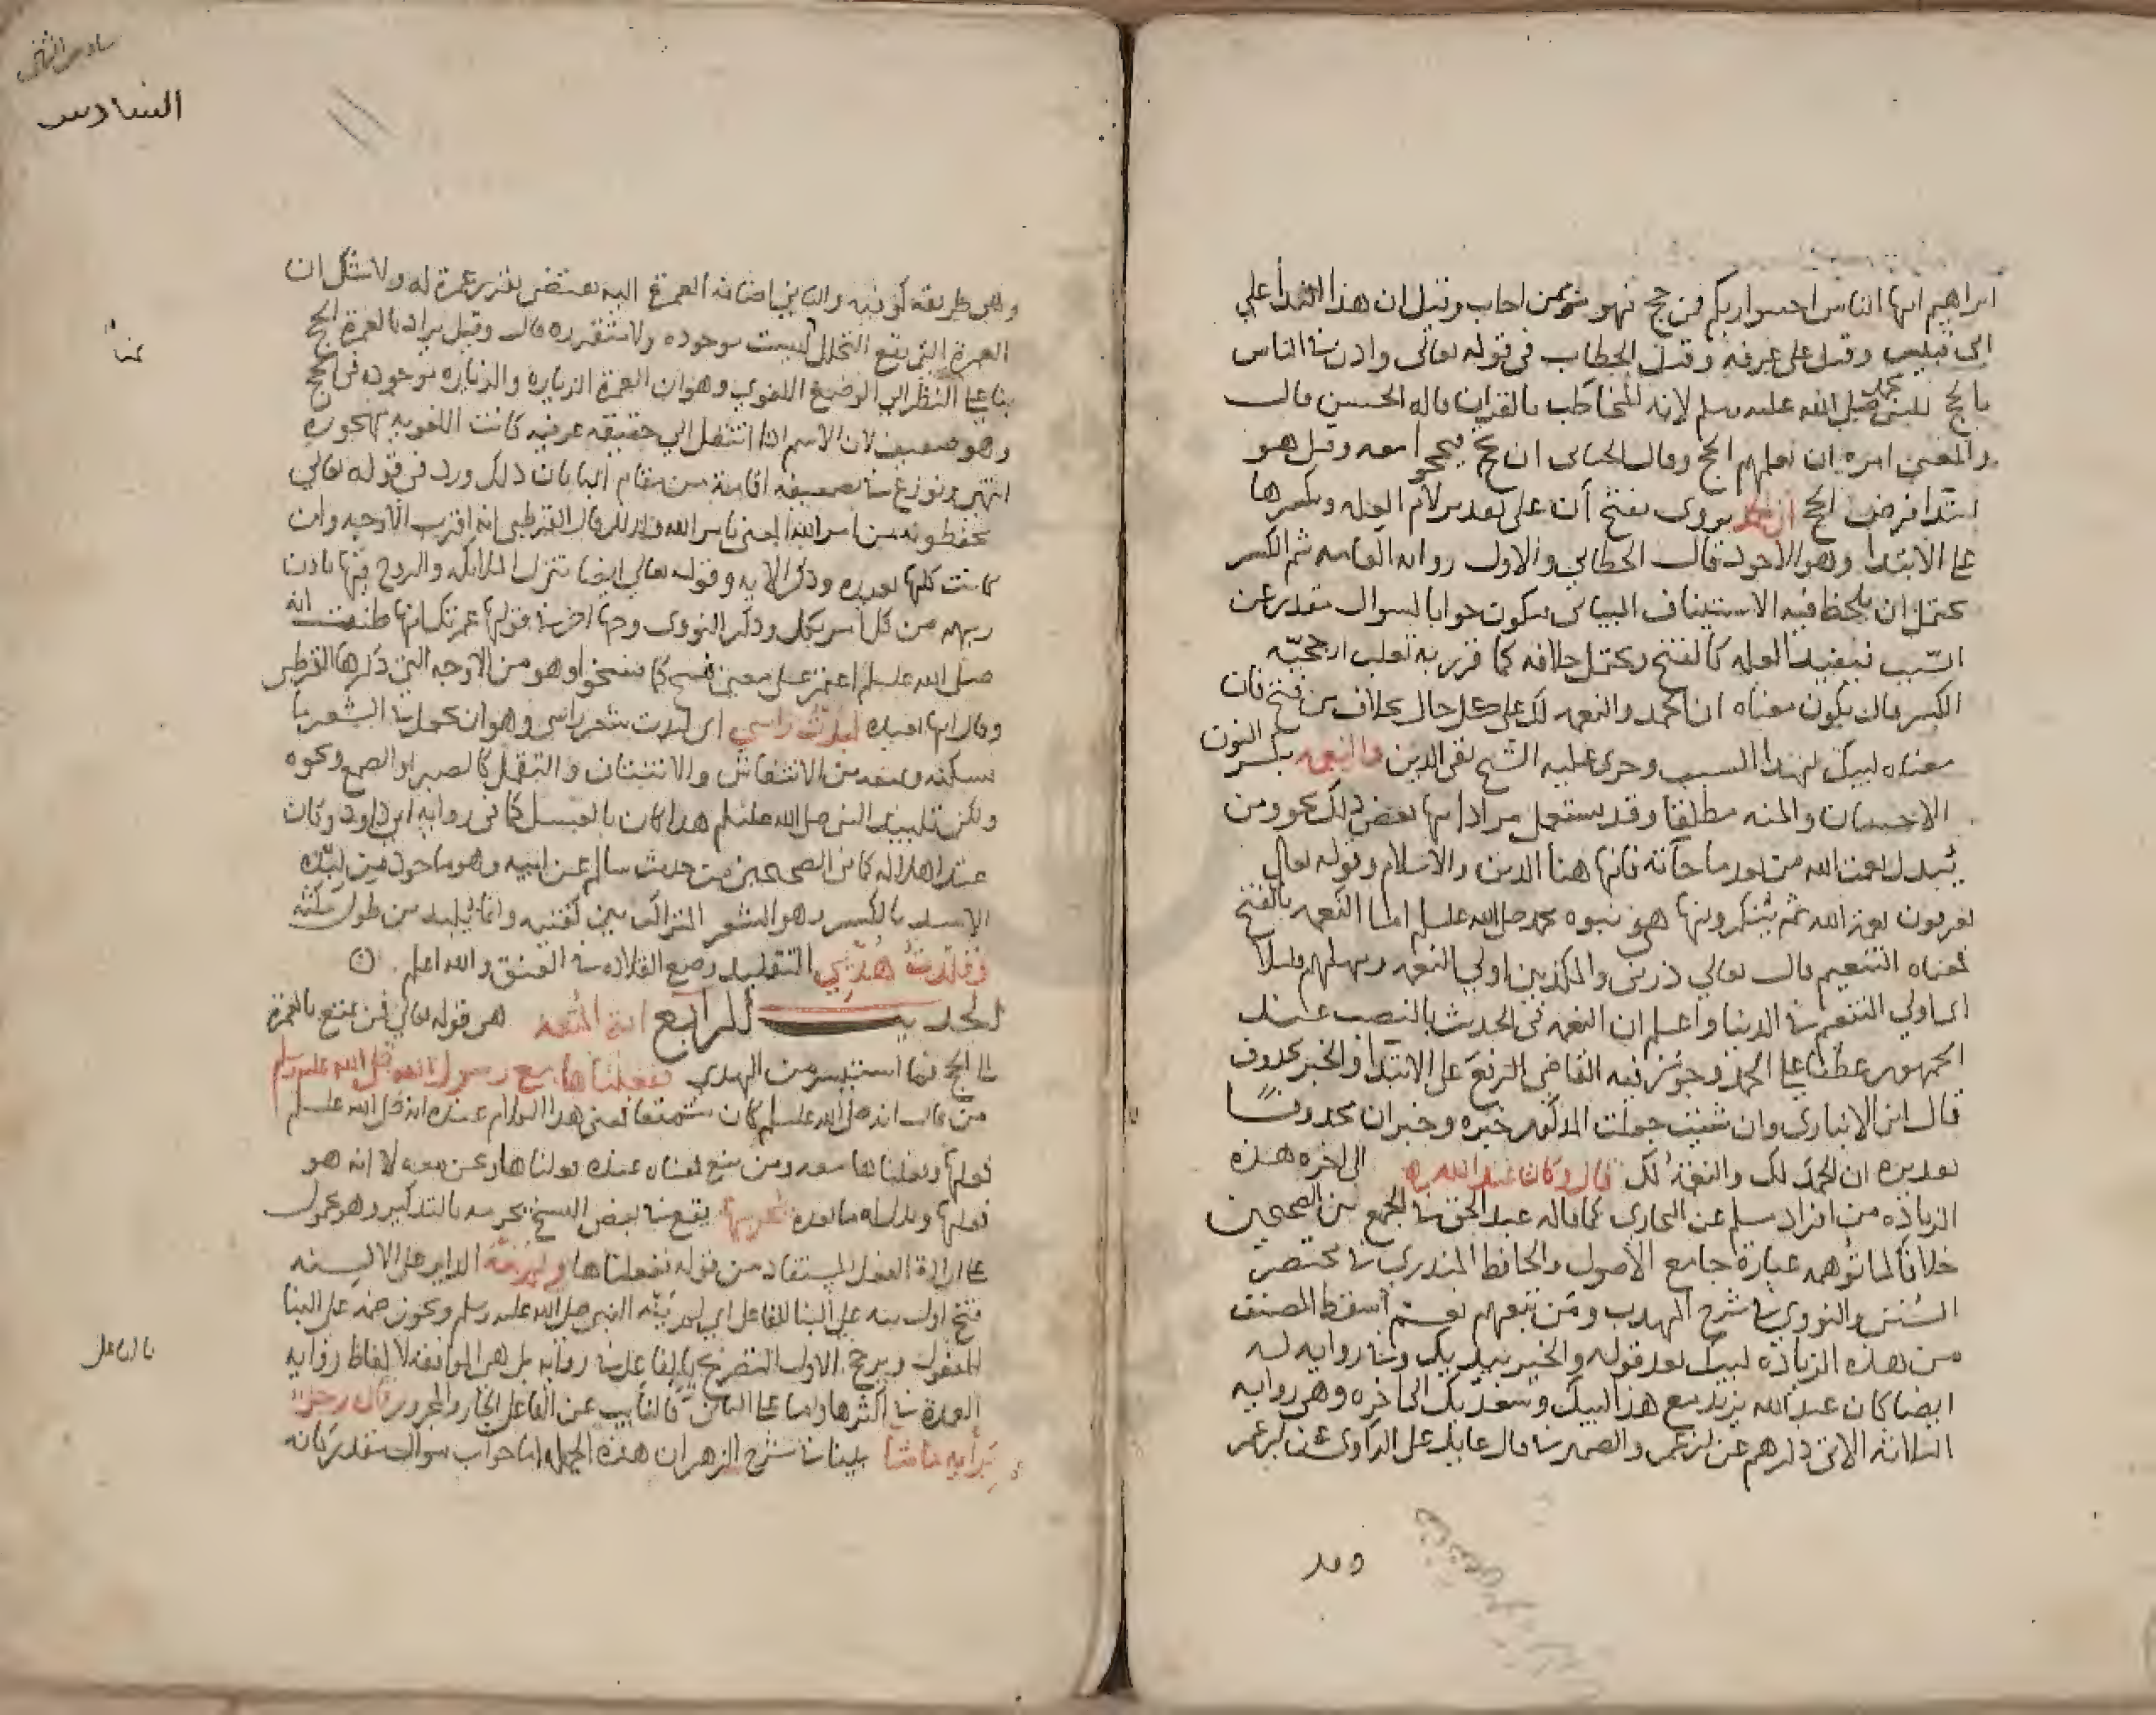 ابراهيم ايها الناس اجيبوا ربكم فمن حج فهو ممن اجاب وقيل ان هذا الندا علي
ابي قبيس وقيل على عرفه وقيل الخطاب في قوله تعالى واذن في الناس
بالحج للنبي محمد صلى الله عليه وسلم لانه المخاطب بالقران قاله الحسن قال
والمعنى امره ان يعلمهم الحج وقال الجبائي ان حج يحجوا معه وقيل هو
ابتدا فرض الحج ان الحمد يروى بفتح أن على تقدير لام العله وبكسرها
على الابتدا وهو الاجود قال الخطابي والاول روايه العامه ثم الكسر
يحتمل ان يلحظ فيه الاستيناف البياني فيكون جوابا لسوال مقدر عن
السّبب فيفيد العله كالفتح ويحتمل خلافه كما قرر به ثعلب ارجحيّه
الكسر فقال يكون معناه ان الحمد والنعمه لك على كل حال بخلاف من فتح فان
معناه لبيك لهذا السبب وجرى عليه الشيخ تقي الدين والنعمه بكسر النون
الاحسان والمنه مطلقا وقد يستعمل مرادا بها بعض ذلك نحو ومن
يُبدل نعمت الله من بعد ما جاته فانها هنا الدين والاسلام وقوله تعالى
يعرفون نعمة الله ثم يُنكرونها هي نبوه محمد صلى الله عليه وسلم اما النَعمه بالفتح
فمعناه التنعيم قال تعالي ذرني والمكذبين اولي النعمه ومهلهم قليلا
اي اولي التنعم في الدنيا واعلم ان النعمه في الحديث بالنصب عند
الجمهور عطفا على الحمد وجوّز فيه القاضي الرفعَ على الابتدا والخبر محذوف
قال ابن الانباري وان شئت جعلت المذكور خبره وخبر ان محذوفًا
تقديره ان الحمدَ لك والنعمةُ لك قال وكان عبد الله الى اخره هذه
الزياده من افراد مسلم عن البخاري كما قاله عبد الحق في الجمع بين الصحيحين
خلافًا لما توهمه عبارة جامع الاصول والحافظ المنذري في مختصر
السُنن والنووي في شرح المهذب ومَن تبعهم نعم أسقط المصنف
من هذه الزياده لبيك بعد قوله والخير بيديك وفي روايه له
ايضا كان عبدُ الله يزيد مع هذا لبيك وسعدَيك الى اخره وهي روايه
الثلاثه الاتي ذكرهم عن ابن عمر والضمير في قال عايد على الراوي عن ابن عمر
وقد
سادس الثاني
السادس
وهي طريقه كوفيه والثاني اضافه العمرة اليه يقتضي تقرير عمرة له ولا شك ان
العمرة التي يقع التحلل ليست موجوده ولا متقرره قال وقيل يراد بالعمرة الحج
بنا على النظر الي الوضع اللغوي وهو ان العمرة الزياره والزياره موجوده في الحج
وهو ضعيف لان الاسم اذا انتقل الي حقيقه عرفيه كانت اللغويه مهجوره
انتهى ونوزع في تضعيفه اقامة من مقام البا بان ذلك ورد في قوله تعالي
يحفظونه من امر الله المعنى بامر الله ولذلك قال القرطبي انه اقرب الاوجه وان
كانت كلها بعيده وذكر الايه وقوله تعالي ايضا تنزل الملائكه والروح فيها باذن
ربهم من كل امر بكل وذكر النووي وجها اخر في قولها عمرتك انها ظننت انه
صلى الله عليه وسلم اعتمر على معنى فسخ كما فسخوا وهو من الاوجه التي ذكرها القرطبي
وقال انها بعيده لبدّتُ راسي اي لبدت شعر راسي وهو ان يجعل في الشعر ما
يسكنه ويمنعه من الانتفاش والانتتاف والتقمّل كالصبر او الصمغ ونحوه
ولكن تلبيد النبي صلى الله عليه وسلم هذا كان بالعسل كما في رواية ابي داود وكان
عند اهلاله كما في الصحيحين من حديث سالم عن ابيه وهو ماخوذ من لِبَدِه
الاسد بالكسر وهو الشعر المتراكب بين كتفيه وانما يُلبد من طول مكثه
وقلدتُ هَديي التقليد وضع القلاده في العنق والله اعلم
الحديث الرابع اية المتعه هي قوله تعالي فمن تمتع بالعمرة
الى الحج فما استيسر من الهدي ففعلناها مع رسول الله صلى الله عليه وسلم
من قال انه صلى الله عليه وسلم كان متمتعا فمعنى هذا الكلام عنده انه صلى الله عليه وسلم
فعلها وفعلناها معه ومن منع فمعناه عنده فعلناها ونحن معه لا انه هو
فعلها ويدل له ما بعده يحرمها يقع في بعض النسخ يحرمه بالتذكير وهو محمول
على ارادة الفعل المستفاد من قوله ففعلناها ولم ينه الداير على الالسنه
فتح اول ينه على البنا للفاعل اي لم ينه النبي صلى الله عليه وسلم ويجوز ضمه على البنا
للمفعول ويرجح الاول التصريح بالفاعل في روايه بل هي الموافقه لالفاظ روايه
العمدة في اكثرها واما على الثاني فالنايب عن الفاعل الجار والمجرور قال رجلٌ
برأيه ما شا بينا في شرح الزهر ان هذه الجمله اما جواب سوال مقدر كانه
بالفاعل